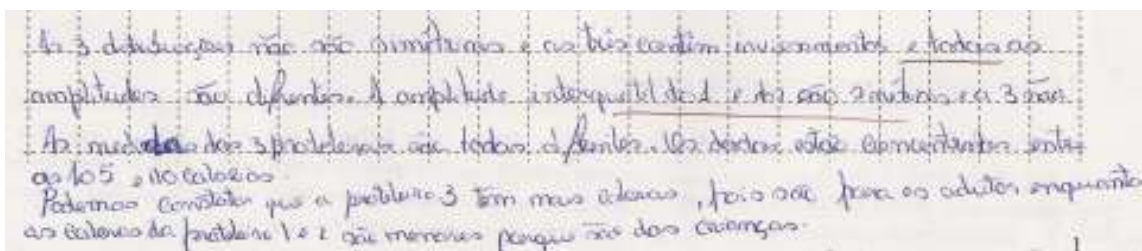 As 3 distribuições não são simétricas e as três contêm e todas as
amplitudes são diferentes. A amplitude interquartil do 1 e do 2 são e a 3 não.
As medidas dos 3 problemas são todas diferentes. Os dados estão concentrados entre
as 105 e 110 calorias.
Podemos constatar que a prateleira 3 tem mais calorias, pois são para os adultos enquanto
as calorias da prateleira 1 e 2 são menores porque são das crianças.